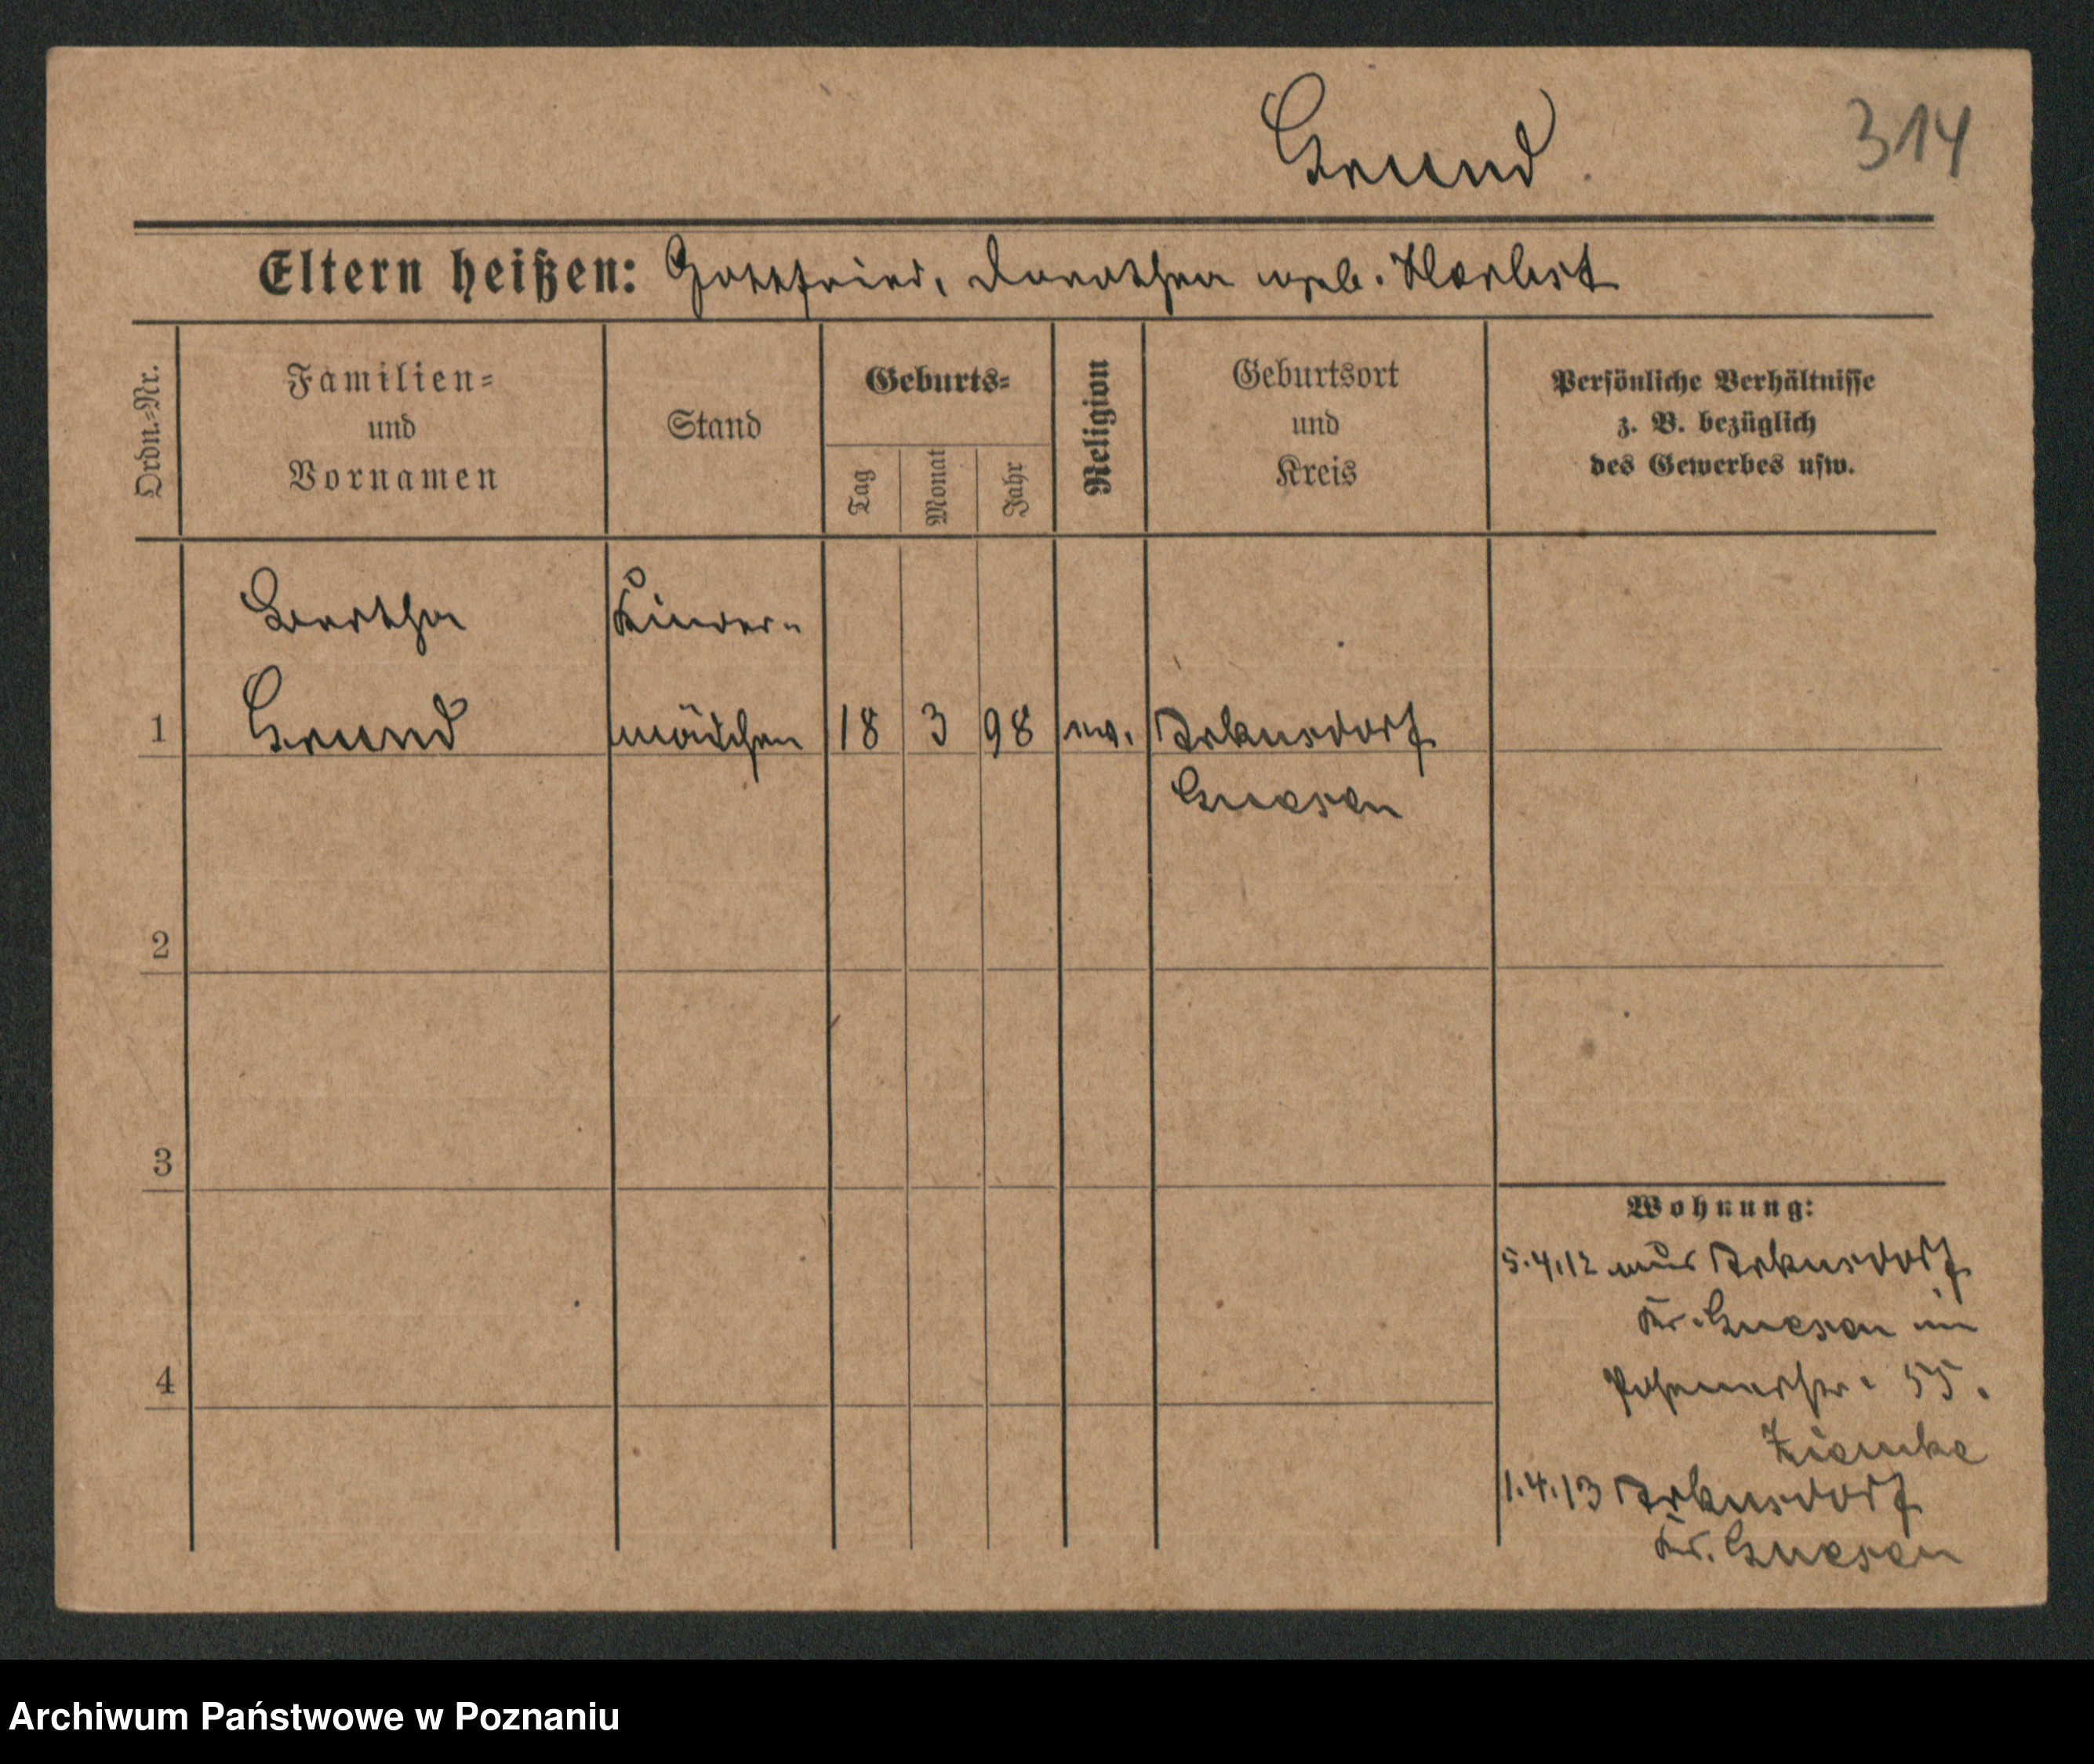 Grund.
314
Eltern heißen: Gottfried, Dorothea geb. Herbst
Ordn.=Nr.
Familien=
und
Vornamen
Stand
Geburts=
Tag
Monat
Jahr
Religion
Geburtsort
und
Kreis
Persönliche Verhältnisse
z. B. bezüglich
des Gewerbes usw.
Bertha Kinder=
1 Grund mädchen 18 3 98 ev. Arkusdorf
Gnesen
2
3
4
Wohnung:
5.4.12 aus Arkusdorf
Kr. Gnesen in
Posenerstr. 55.
Ziemke
1.4.13 Arkusdorf
Kr. Gnesen
Archiwum Państwowe w Poznaniu